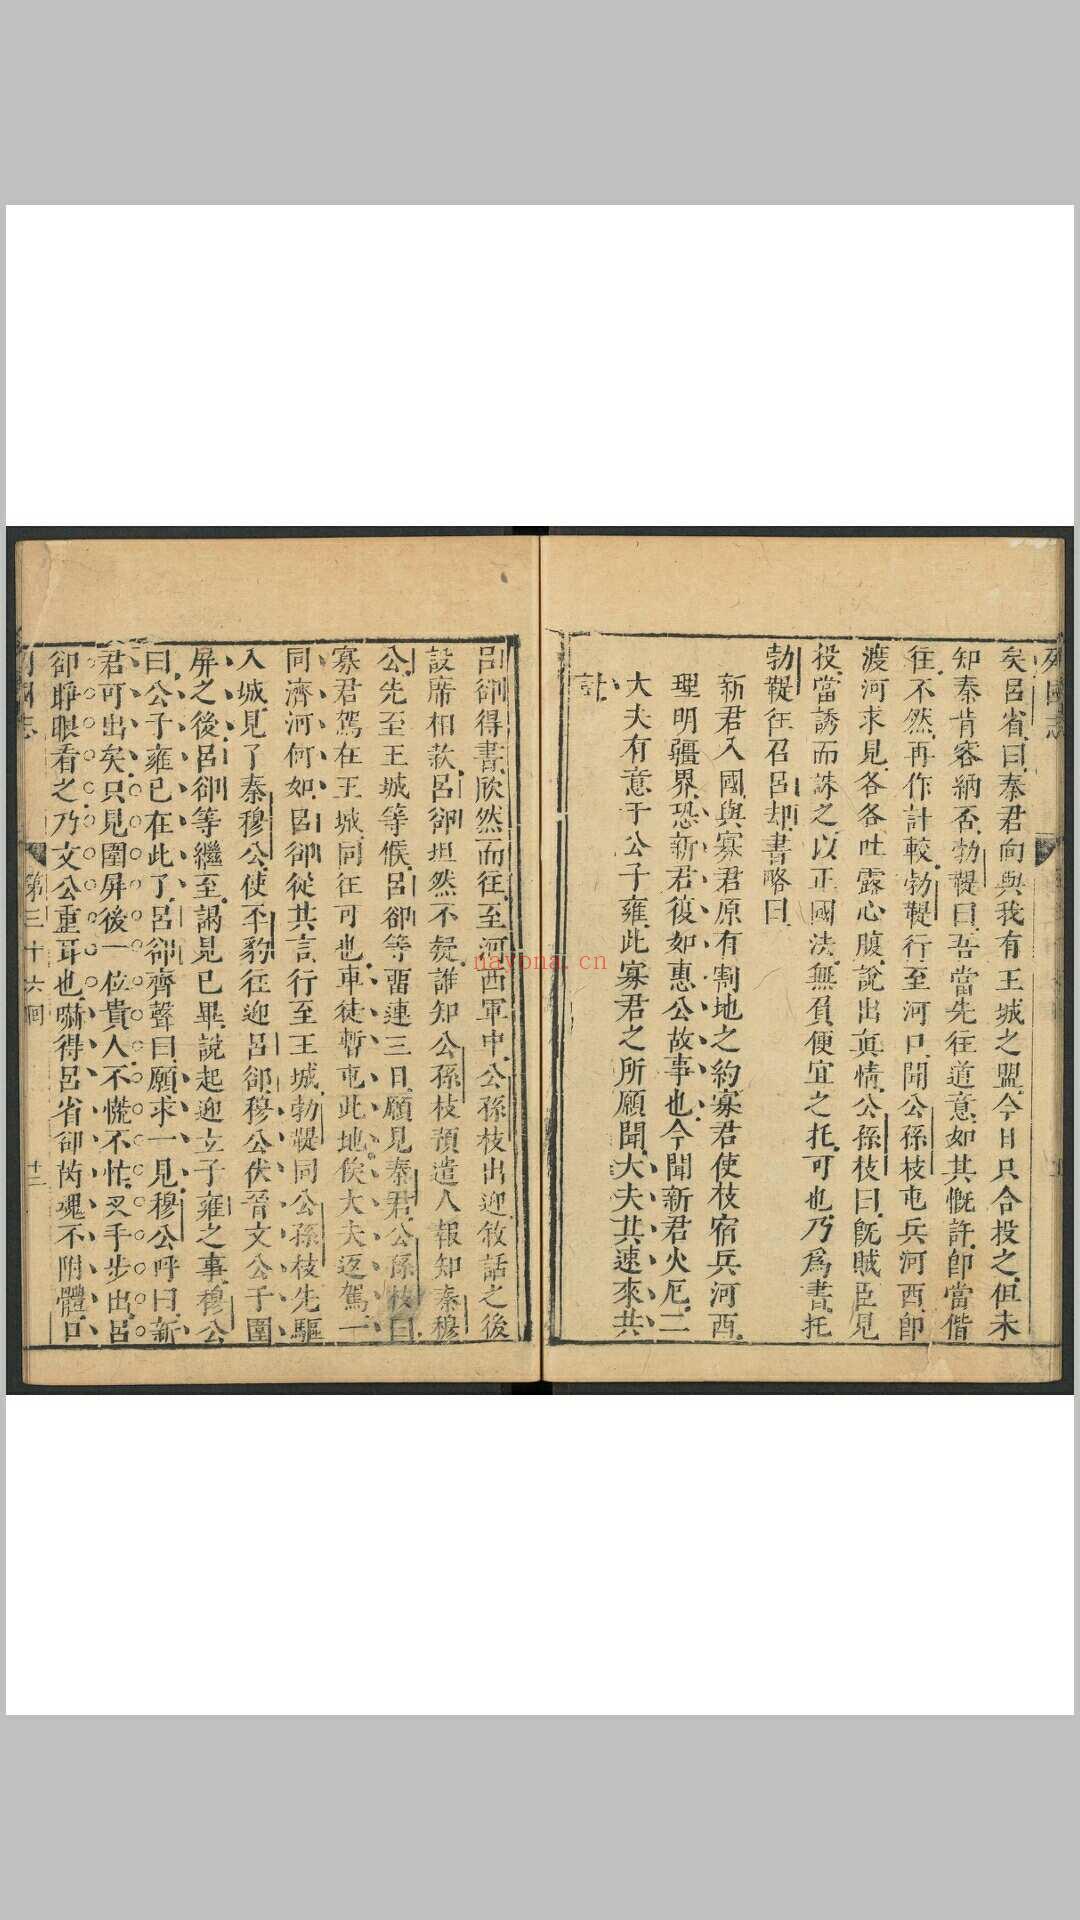 列國志
矣呂省曰秦君向與我有王城之盟今日只合投之但未
知秦肯容納否勃鞮曰吾當先往道意如其慨許即當偕
往不然再作計較勃鞮行至河口聞公孫枝屯兵河西即
渡河求見各各吐露心腹說出真情公孫枝曰既賊臣見
投當誘而誅之以正國法無負便宜之托可也乃爲書托
勃鞮往召呂却書略曰
新君入國與寡君原有割地之約寡君使枝宿兵河西
理明疆界恐新君復如惠公故事也今聞新君火厄二
大夫有意于公子雍此寡君之所願聞大夫其速來共
計
呂郤得書欣然而往至河西軍中公孫枝出迎敘話之後
設席相款呂郤坦然不疑誰知公孫枝預遣人報知秦穆
公先至王城等候呂郤等畱連三日願見秦君公孫枝曰
寡君駕在王城同往可也車徒暫屯此地俟大夫返駕一
同濟河何如呂郤從其言行至王城勃鞮同公孫枝先驅
入城見了秦穆公使丕豹往迎呂郤穆公伏晉文公于圍
屏之後呂郤等繼至謁見已畢說起迎立子雍之事穆公
曰公子雍已在此了呂郤齊聲曰願求一見穆公呼曰新
君可出矣只見圍屏後一位貴人不慌不忙叉手步出呂
郤睜眼看之乃文公重耳也嚇得呂省郤芮魂不附體口
列國志 第三十六囘 十三
nayona.cn